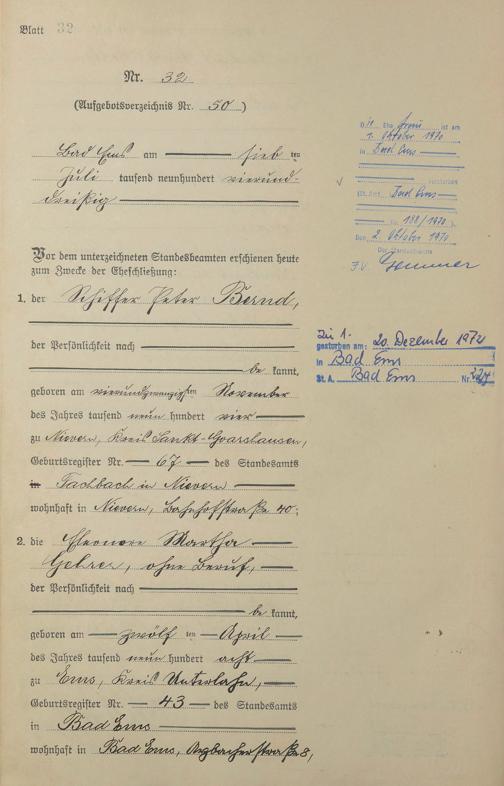 Blatt 32
Nr. 32
(Aufgebotsverzeichnis Nr. 50)
Bad Ems am sieb ten
Juli tausend neunhundert vierund-
dreißig
Vor dem unterzeichneten Standesbeamten erschienen heute
zum Zwecke der Eheschließung:
1. der Schiffer Peter Bernd,
der Persönlichkeit nach
be kannt,
geboren am vierundzwanzigsten November
des Jahres tausend neun hundert vier
zu Nievern, Kreis Sankt-Goarshausen,
Geburtsregister Nr. 67 des Standesamts
in Fachbach in Nievern
wohnhaft in Nievern, Bahnhofstraße 40;
2. die Eleonore Martha
ohne Beruf,
der Persönlichkeit nach
be kannt,
geboren am zwölf ten April
des Jahres tausend neun hundert acht
zu Ems, Kreis Unterlahn,
Geburtsregister Nr. 43 des Standesamts
in Bad Ems
wohnhaft in Bad Ems, Arzbacherstraße 8,
Die Ehefrau ist am
1. Oktober 1970
in Bad Ems
verstorben
(St. Amt Bad Ems
Nr. 188/1970).
Den 2. Oktober 1970
Der Standesbeamte
I.V.
Zu 1.
gestorben am: 20. Dezember 1972
in Bad Ems
St. A. Bad Ems Nr.